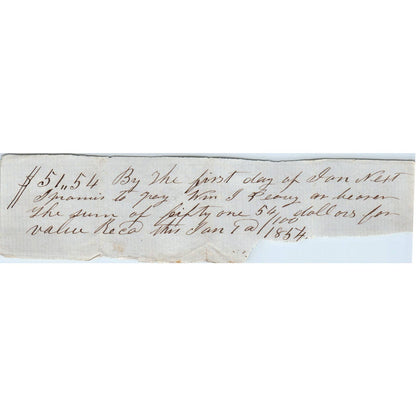 $51,,54 By the first day of Jan Next
I promis to pay Wm I or bearer
the sum of fifty one 54/100 dollars for
value Recd this Jan 1854.